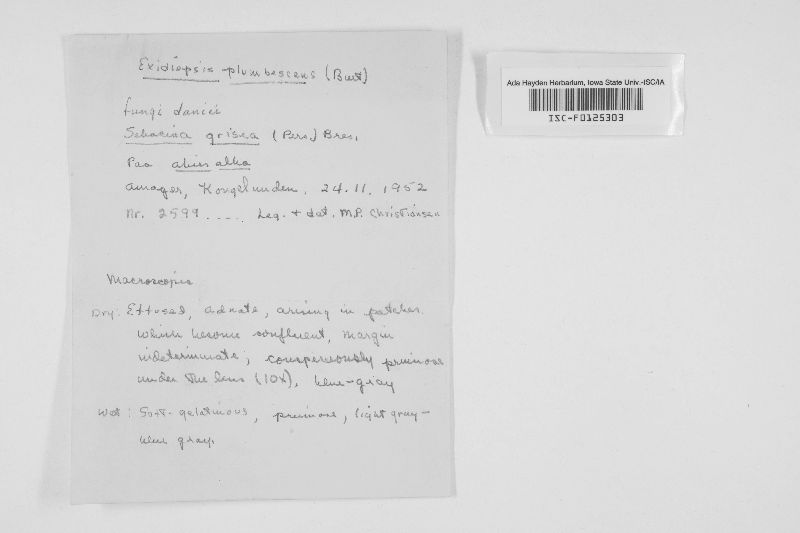 Exidiopsis plumbescens (Burt)
Fungi danici
Sebacina grisea (Pers.) Bres.
Paa abies alba
amager, Kongelunden. 24.11.1952
Nr. 2599 ..... Leg. + det. M.P. Christiansen
Macroscopic
Dry: Effused, adnate, arising in patches
which become confluent, margin
indeterminate; conspicuously pruinose
under the lens (10x), blue-gray
Wet: Soft-gelatinous, pruinose, light gray-
blue gray.
Ada Hayden Herbarium, Iowa State Univ.-ISC/IA
ISC-F0125303